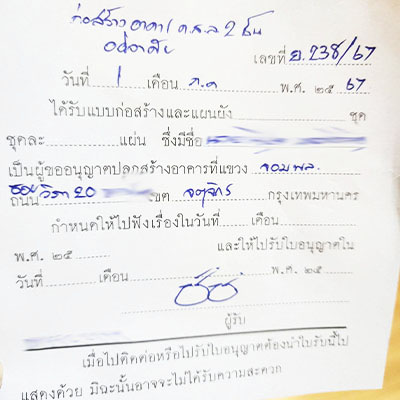 ก่อสร้างอาคาร ค.ส.ล 2 ชั้น
อยู่อาศัย
เลขที่ ย.238/67
วันที่ 1 เดือน ภ.ค พ.ศ. ๒๕ 67
ได้รับแบบก่อสร้างและแผนผัง ชุด
ชุดละ แผ่น ซึ่งมีชื่อ
เป็นผู้ขออนุญาตปลูกสร้างอาคารที่แขวง จอมพล
ถนน ซอยวิภา 20 เขต จตุจักร กรุงเทพมหานคร
กำหนดให้ไปฟังเรื่องในวันที่ เดือน
พ.ศ. ๒๕ และให้ไปรับใบอนุญาตใน
วันที่ เดือน พ.ศ. ๒๕
ผู้รับ
เมื่อไปติดต่อหรือไปรับใบอนุญาตต้องนำใบรับนี้ไป
แสดงด้วย มิฉะนั้นอาจจะไม่ได้รับความสะดวก